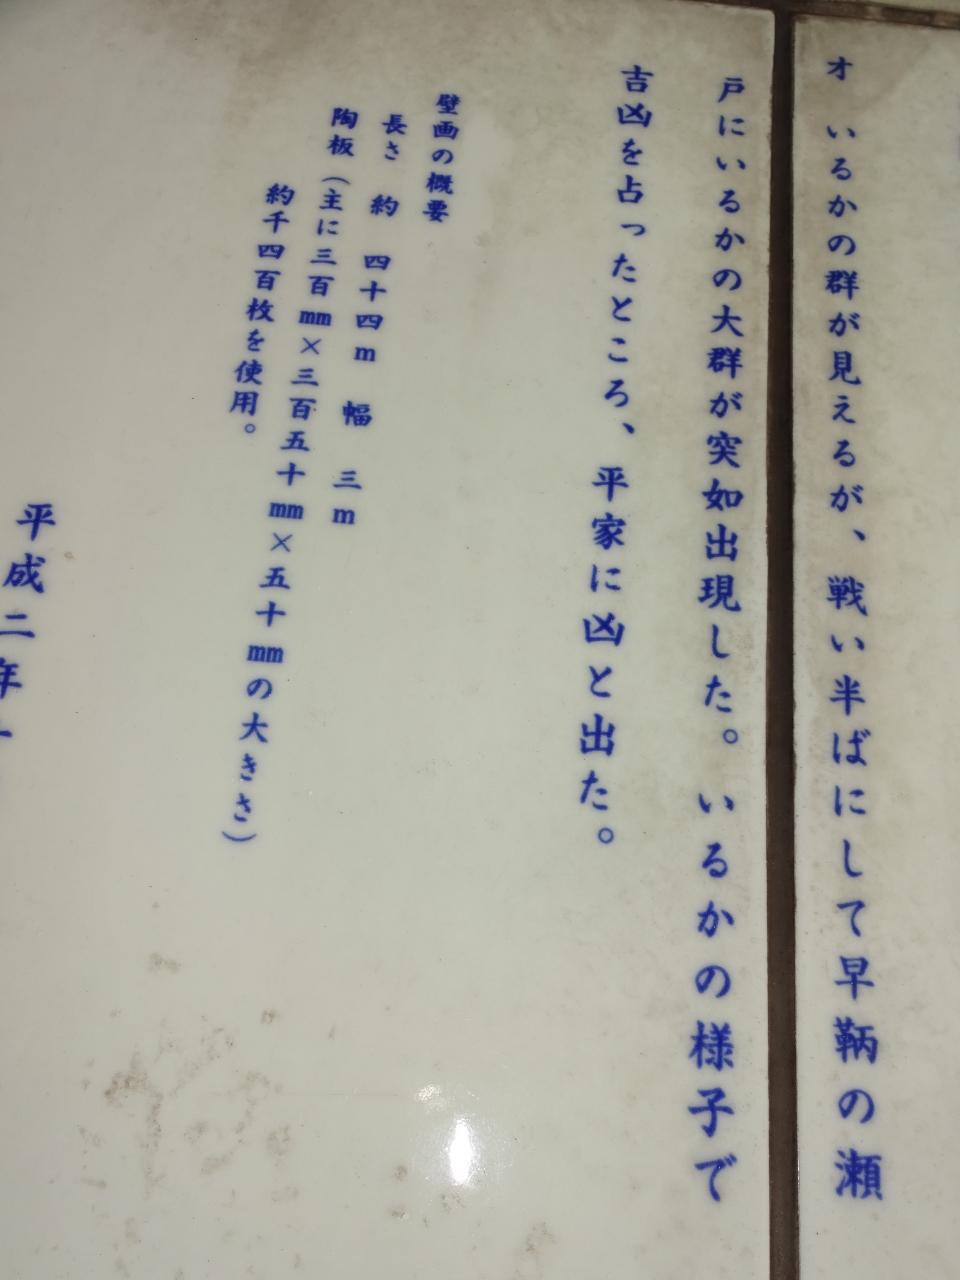 オ いるかの群が見えるが、戦い半ばにして早鞆の瀬
戸にいるかの大群が突如出現した。いるかの様子で
吉凶を占ったところ、平家に凶と出た。
壁画の概要
長さ 約 四十四m 幅 三m
陶板（主に三百mm×三百五十mm×五十mmの大きさ）
約千四百枚を使用。
平成二年